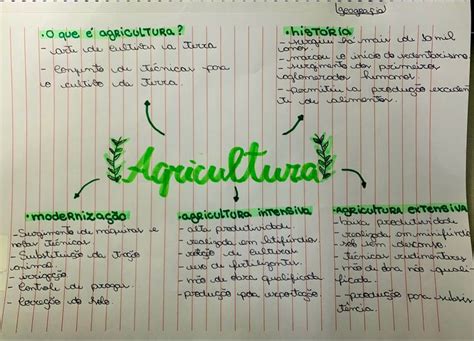 Geografia
• O que é AGRICULTURA?
- arte de cultivar a terra
- Conjunto de técnicas para
o cultivo da terra.
• HISTÓRIA
- surgiu há mais de 10 mil
anos.
- marcou o início do sedentarismo
- surgimento dos primeiros
aglomerados humanos.
- permitiu a produção exceden
te de alimentos.
Agricultura
• MODERNIZAÇÃO
- Surgimento de máquinas e
novas técnicas.
- Substituição da tração
animal.
- irrigação
- Controle de pragas.
- Correção do solo.
• AGRICULTURA INTENSIVA
- alta produtividade
- realizada em latifúndios
- rotação de culturas
- uso de fertilizantes.
- mão de obra qualificada
- produção para exportação.
• AGRICULTURA EXTENSIVA
- baixa produtividade
- realizada em minifúndios
- solo sem descanso.
- técnicas rudimentares
- mão de obra não quali
ficada.
- produção para subsis
tência.